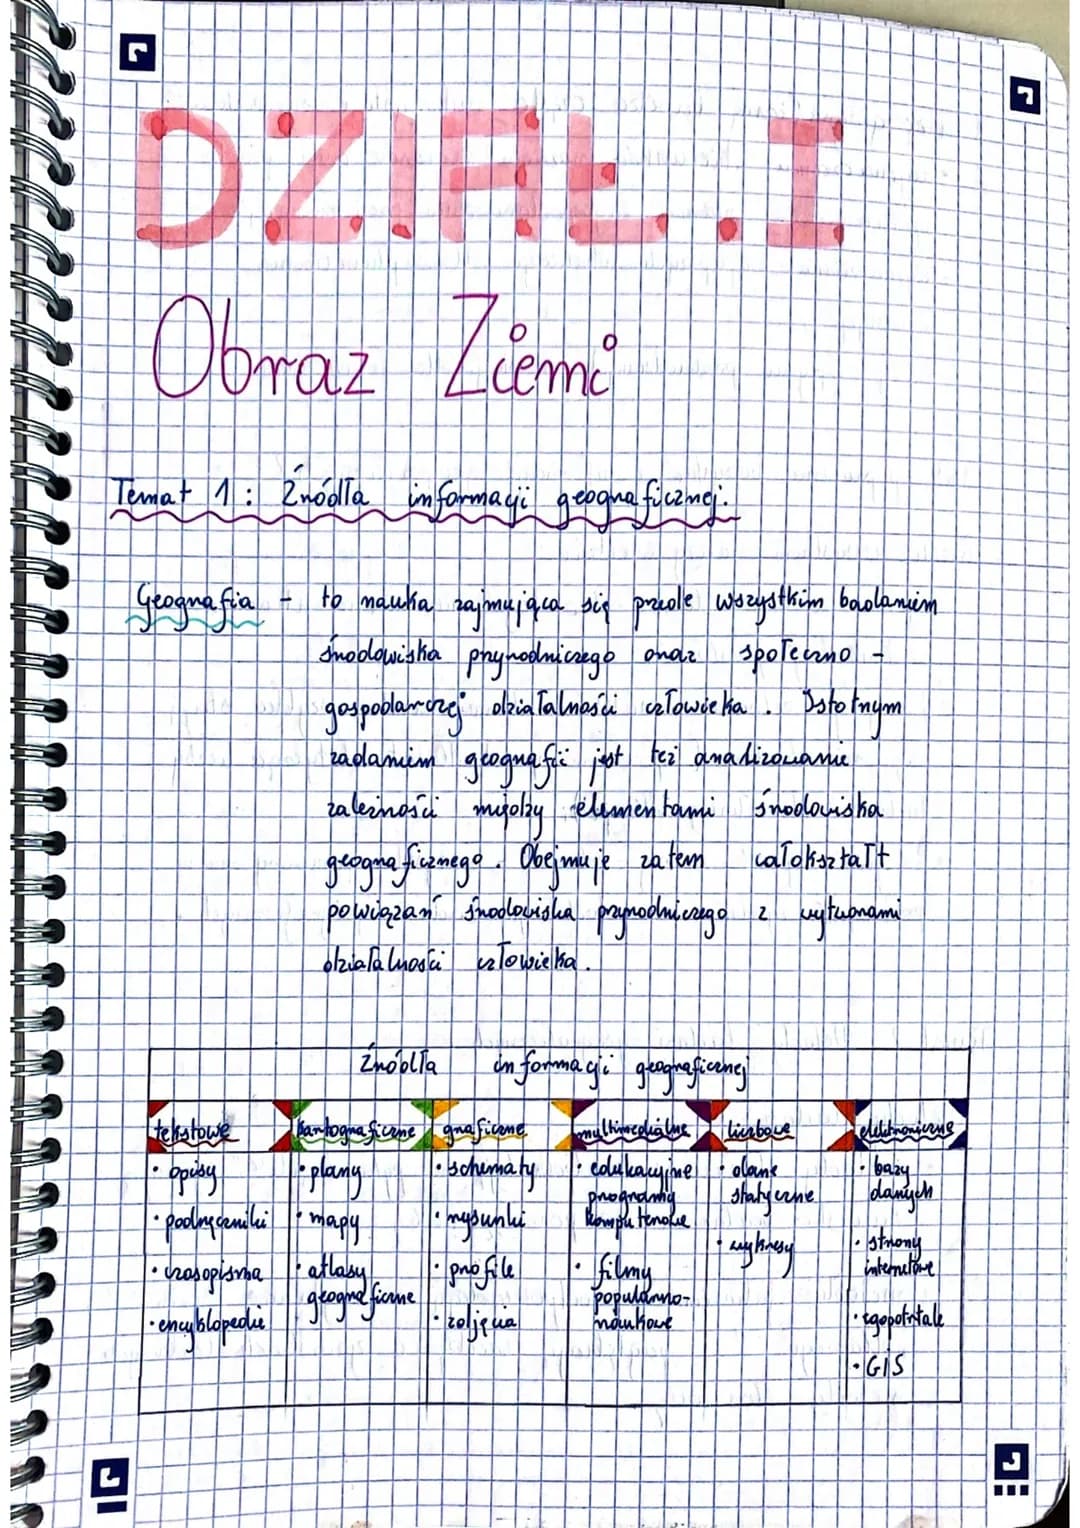 DZIAŁ.I
Obraz Ziemi
Temat 1: Źródła informacji geograficznej.
Geografia - to nauka zajmująca się przede wszystkim badaniem
środowiska przyrodniczego oraz społeczno -
gospodarczej działalności człowieka. Istotnym
zadaniem geografii jest też analizowanie
zależności między elementami środowiska
geograficznego. Obejmuje zatem całokształt
powiązań środowiska przyrodniczego z wytworami
działalności człowieka.
Źródła informacji geograficznej
tekstowe
• opisy
• podręczniki
• czasopisma
• encyklopedie
kartograficzne
• plany
• mapy
• atlasy
geograficzne
graficzne
• schematy
• rysunki
• profile
• zdjęcia
multimedialne
• edukacyjne
programy
komputerowe
• filmy
popularno-
naukowe
liczbowe
• dane
statyczne
• wykresy
elektroniczne
• bazy
danych
• strony
internetowe
• GIS